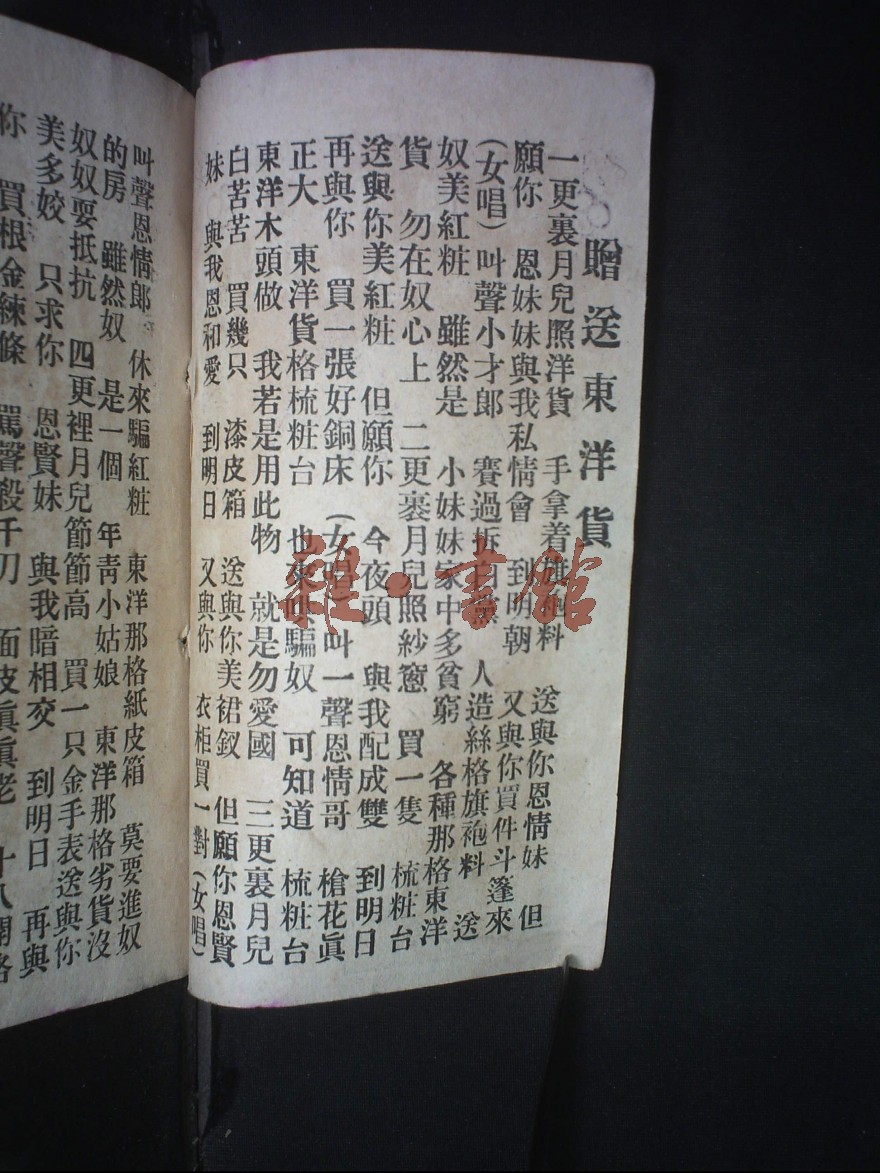 贈送東洋貨
一更裏月兒照洋貨　手拿着旗袍料　送與你恩情妹　但
願你　恩妹妹與我私情會　到明朝　又與你買件斗篷來
(女唱)叫聲小才郎　賽過拆白黨　人造絲格旗袍料　送
奴美紅粧　雖然是　小妹妹家中多貧窮　各種那格東洋
貨　勿在奴心上　二更裏月兒照紗窓　買一隻　梳粧台
送與你美紅粧　但願你　今夜頭　與我配成雙　到明日
再與你　買一張好銅床　(女唱)叫一聲恩情哥　槍花眞
正大　東洋貨格梳粧台　也來哄騙奴　可知道　梳粧台
東洋木頭做　我若是用此物　就是勿愛國　三更裏月兒
白苦苦　買幾只　漆皮箱　送與你美裙釵　但願你恩賢
妹　與我恩和愛　到明日　又與你　衣柜買一對(女唱)
叫聲恩情郞　休來騙紅粧　東洋那格紙皮箱　莫要進奴
的房　雖然奴　是一個　年靑小姑娘　東洋那格劣貨沒
奴奴要抵抗　四更裡月兒節節高　買一只金手表送與你
美多姣　只求你　恩賢妹　與我暗相交　到明日　再與
你　買根金練條　罵聲殺千刀　面皮眞眞老
雜·書館